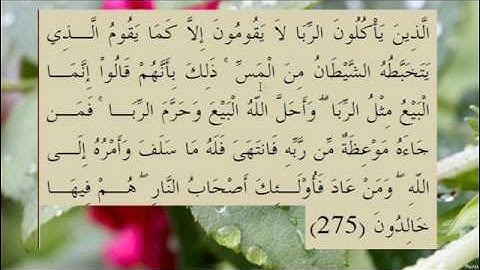 الَّذِينَ يَأْكُلُونَ الرِّبَا لاَ يَقُومُونَ إِلاَّ كَمَا يَقُومُ الَّـــذِي
يَتَخَبَّطُهُ الشَّيْطَانُ مِنَ الْمَسِّ ۚ ذَلِكَ بِأَنَّهُمْ قَالُواْ إِنَّمَـــا
الْبَيْعُ مِثْلُ الرِّبَا ۗ وَأَحَلَّ اللّهُ الْبَيْعَ وَحَرَّمَ الرِّبَـــا ۚ فَمَـــن
جَاءهُ مَوْعِظَةٌ مِّن رَّبِّهِ فَانتَهَىَ فَلَهُ مَا سَلَفَ وَأَمْرُهُ إِلَـــى
اللّهِ ۖ وَمَنْ عَادَ فَأُوْلَـــئِكَ أَصْحَابُ النَّارِ ۖ هُـــمْ فِيهَـــا
خَالِدُونَ (275)